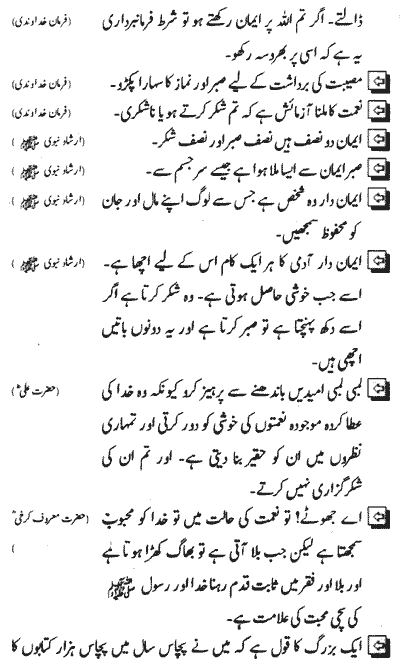 ڈالتے۔ اگر تم اللہ پر ایمان رکھتے ہو تو شرط فرمانبرداری (فرمان خداوندی)
یہ ہے کہ اسی پر بھروسہ رکھو۔
مصیبت کی برداشت کے لیے صبر اور نماز کا سہارا پکڑو۔ (فرمان خداوندی)
نعمت کا ملنا آزمائش ہے کہ تم شکر کرتے ہو یا ناشکری۔ (فرمان خداوندی)
ایمان دو نصف ہیں نصف صبر اور نصف شکر۔ (ارشاد نبوی ﷺ)
صبر ایمان سے ایسا ملا ہوا ہے جیسے سر جسم سے۔ (ارشاد نبوی ﷺ)
ایمان دار وہ شخص ہے جس سے لوگ اپنے مال اور جان (ارشاد نبوی ﷺ)
کو محفوظ سمجھیں۔
ایمان دار آدمی کا ہر ایک کام اس کے لیے اچھا ہے۔ (ارشاد نبوی ﷺ)
اسے جب خوشی حاصل ہوتی ہے۔ وہ شکر کرتا ہے اگر
اسے دکھ پہنچتا ہے تو صبر کرتا ہے اور یہ دونوں باتیں
اچھی ہیں۔
لمبی لمبی امیدیں باندھنے سے پرہیز کرو کیونکہ وہ خدا کی (حضرت علیؓ)
عطا کردہ موجودہ نعمتوں کی خوشی کو دور کرتی اور تمہاری
نظروں میں ان کو حقیر بنا دیتی ہے۔ اور تم ان کی
شکر گزاری نہیں کرتے۔
اے جھوٹے؟ تو نعمت کی حالت میں تو خدا کو محبوب (حضرت معروف کرخیؒ
سمجھتا ہے لیکن جب بلا آتی ہے تو بھاگ کھڑا ہوتا ہے )
اور بلا اور فقر میں ثابت قدم رہنا خدا اور رسول ﷺ
کی سچی محبت کی علامت ہے۔
ایک بزرگ کا قول ہے کہ میں نے پچاس سال میں پچاس ہزار کتابوں کا